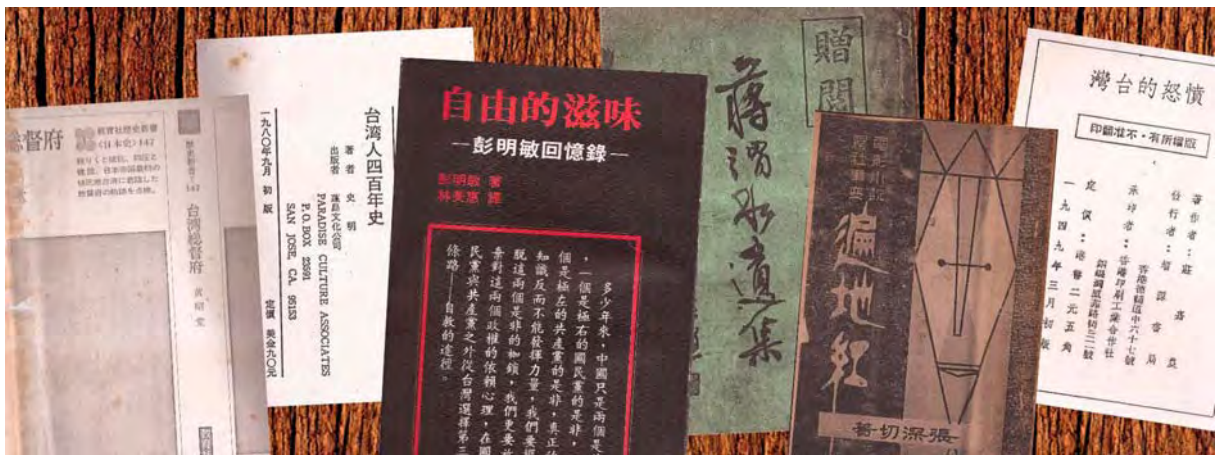 督府
教育社歷史新書
〈日本史〉147
歷史新書
147
台湾総督府
黃昭堂
台湾人四百年史
著者 史明
出版者 蓬島文化公司
PARADISE CULTURE ASSOCIATES
P.O. BOX 23591
SAN JOSE, CA. 95153
一九八〇年九月 初版
定價 美金九〇元
自由的滋味
—彭明敏回憶錄—
彭明敏 著
林美惠 譯
多少年來，中國只是兩個是
，一個是極右的國民黨的是非，
個是極左的共產黨的是非，真正的
知識反而不能發揮力量，我們要擺
脫這兩個是非的枷鎖，我們更要放
棄對這兩個政權的依賴心理，在國
民黨與共產黨之外從台灣選擇第三
條路——自救的途徑。
贈閱
蔣渭水遺集
電影小說
遍地紅
張深切著
憤怒的台灣
版權所有・不准翻印
著作者：莊嘉農
發行者：智源書局
香港德輔道中六十七號
承印者：香港印刷工業合作社
定價：港幣二元五角
一九四九年三月初版